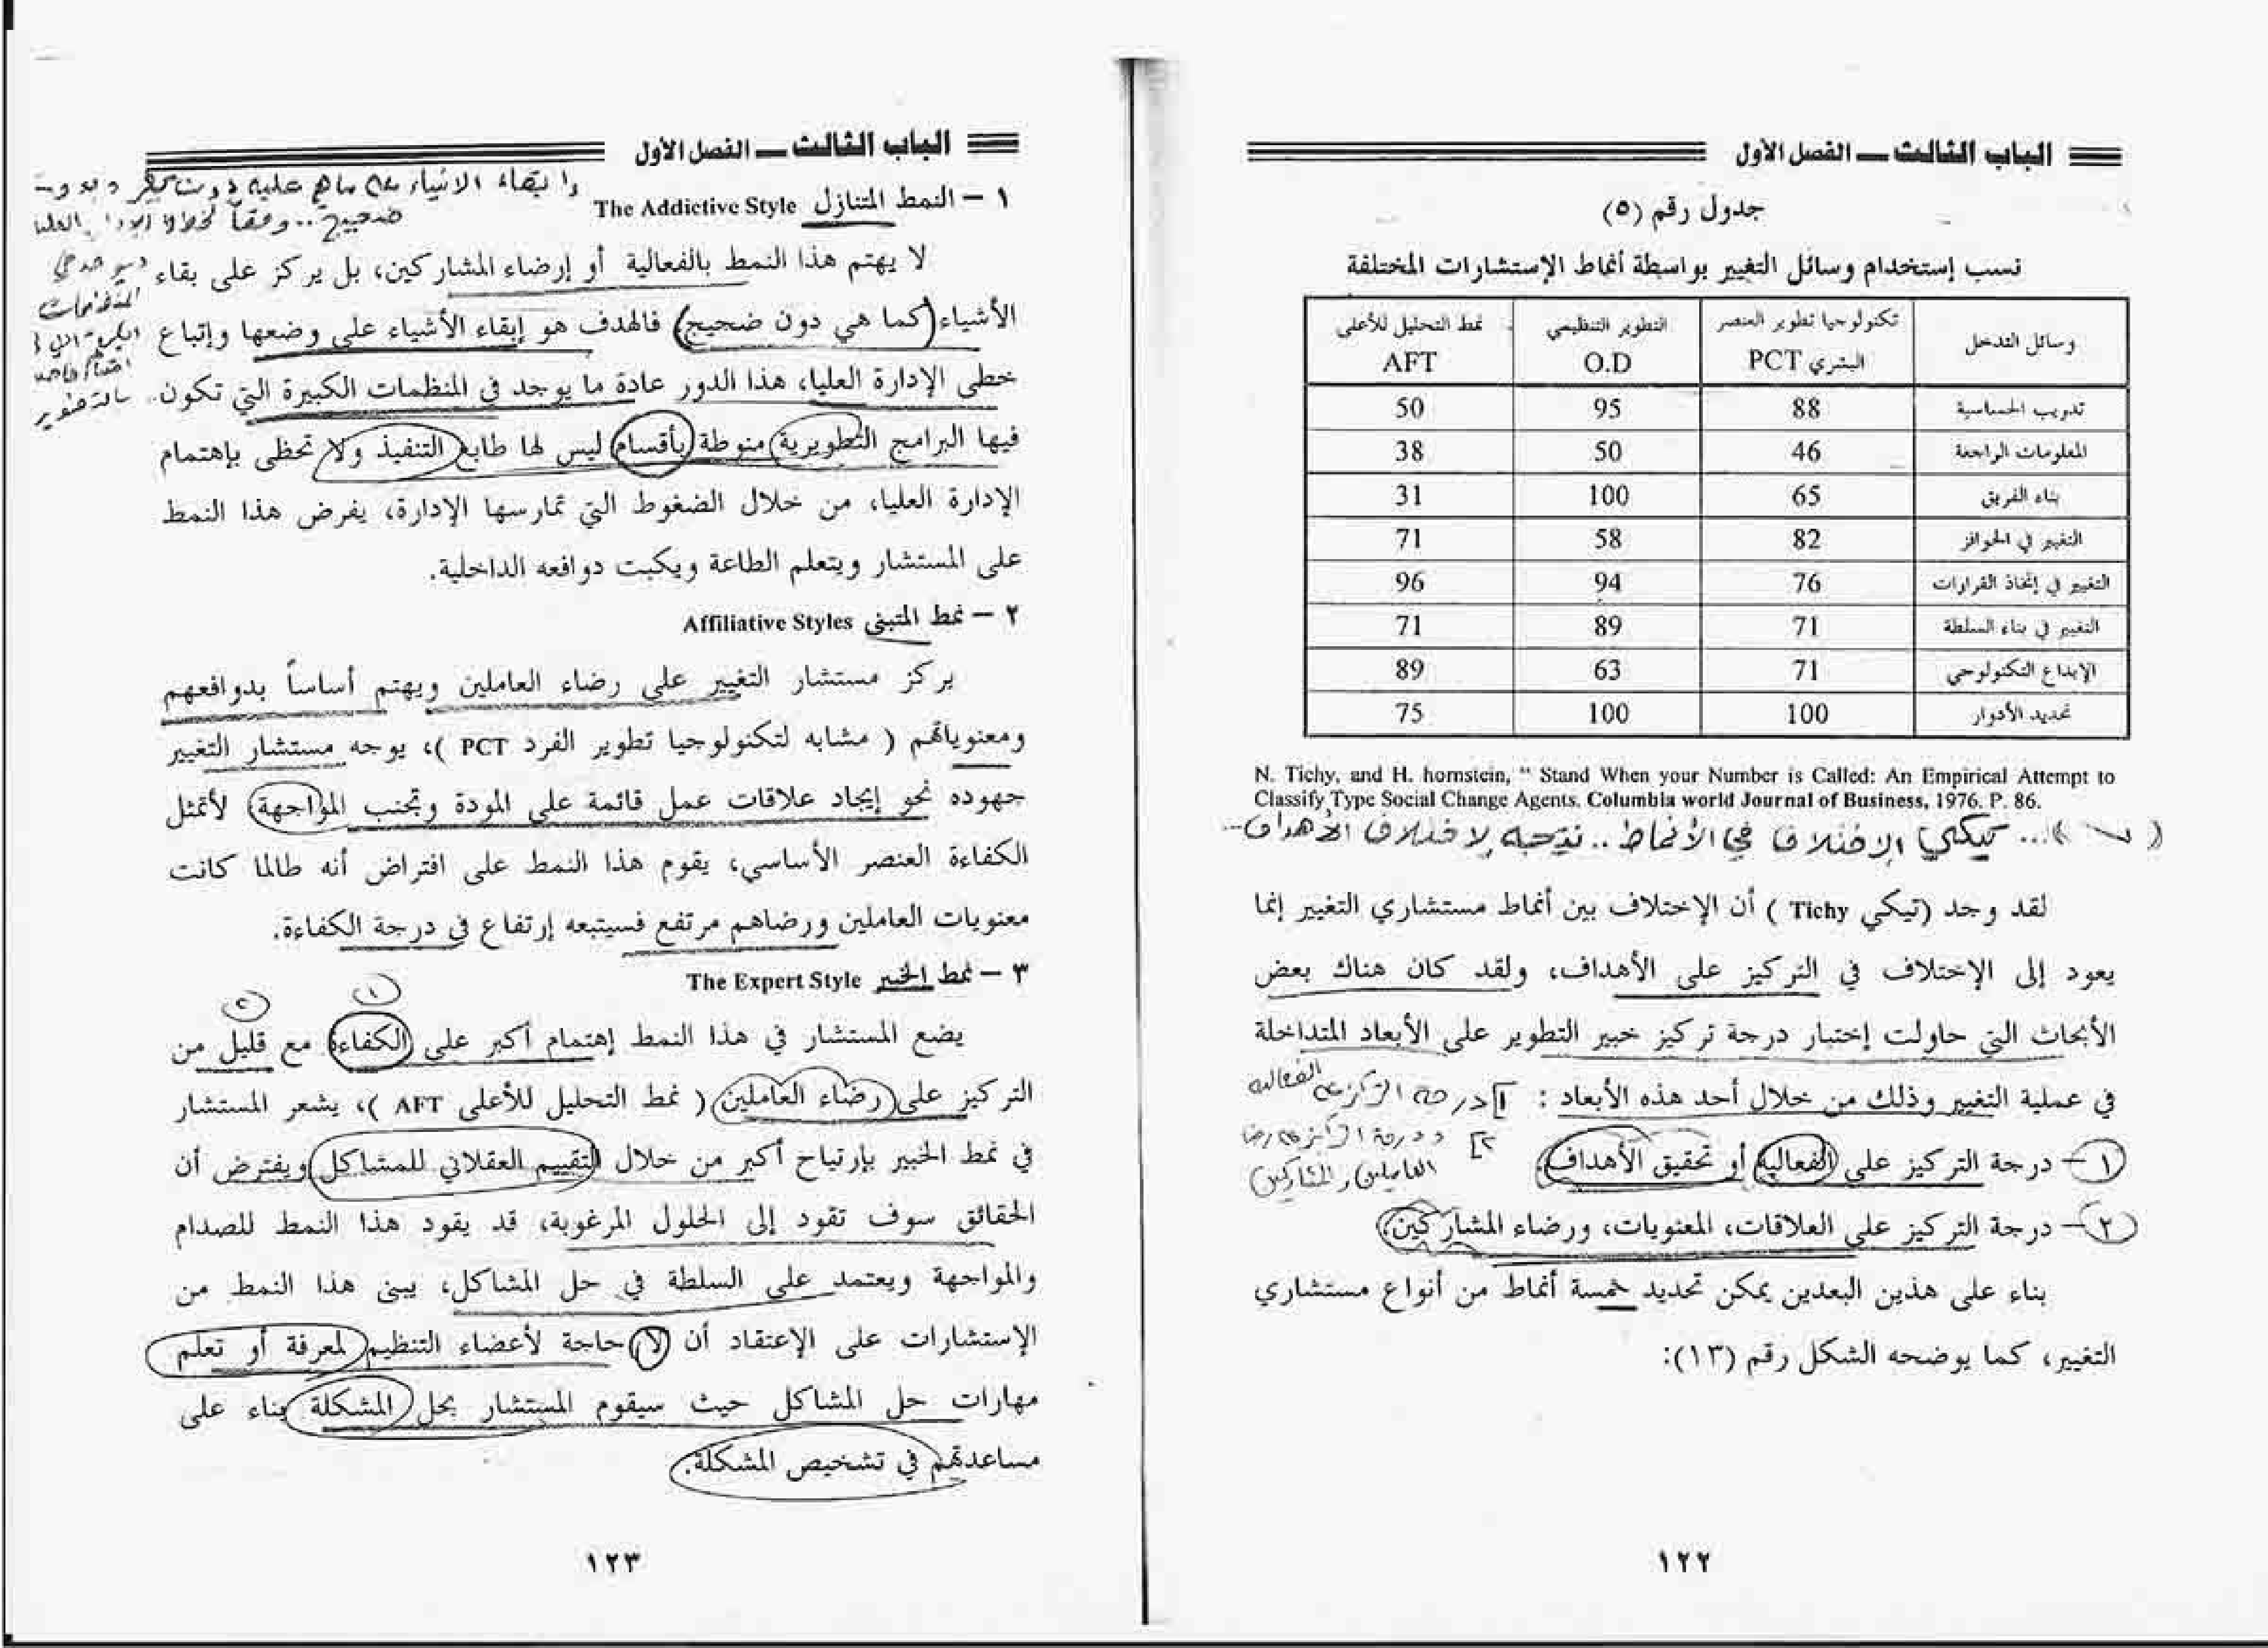 الباب الثالث ــ الفصل الأول
جدول رقم (٥)
نسب إستخدام وسائل التغيير بواسطة أنماط الإستشارات المختلفة
وسائل التدخل | تكنولوجيا تطوير العنصر البشري PCT | التطوير التنظيمي O.D | نمط التحليل للأعلى AFT
تدريب الحساسية 88 95 50
المعلومات الراجعة 46 50 38
بناء الفريق 65 100 31
التغيير في الحوافز 82 58 71
التغيير في إتخاذ القرارات 76 94 96
التغيير في بناء السلطة 71 89 71
الإبداع التكنولوجي 71 63 89
تحديد الأدوار 100 100 75
N. Tichy, and H. hornstein, “ Stand When your Number is Called: An Empirical Attempt to
Classify Type Social Change Agents. Columbia world Journal of Business, 1976. P. 86.
الإختلاف في الأنماط .. نتيجة لإختلاف الأهداف
لقد وجد (تيكي Tichy ) أن الإختلاف بين أنماط مستشاري التغيير إنما
يعود إلى الإختلاف في التركيز على الأهداف، ولقد كان هناك بعض
الأبحاث التي حاولت إختبار درجة تركيز خبير التطوير على الأبعاد المتداخلة
في عملية التغيير وذلك من خلال أحد هذه الأبعاد : درجة التركيز على الفعالية
١ – درجة التركيز على الفعالية أو تحقيق الأهداف.
العاملين والمشاركين
٢ – درجة التركيز على العلاقات، المعنويات، ورضاء المشاركين.
بناء على هذين البعدين يمكن تحديد خمسة أنماط من أنواع مستشاري
التغيير، كما يوضحه الشكل رقم (١٣):
١٢٢
الباب الثالث ــ الفصل الأول
١ – النمط المتنازل The Addictive Style
لا يهتم هذا النمط بالفعالية أو إرضاء المشاركين، بل يركز على بقاء
الأشياء (كما هي دون ضجيج) فالهدف هو إبقاء الأشياء على وضعها وإتباع
خطى الإدارة العليا، هذا الدور عادة ما يوجد في المنظمات الكبيرة التي تكون
فيها البرامج التطويرية منوطة بأقسام ليس لها طابع التنفيذ ولا تحظى بإهتمام
الإدارة العليا، من خلال الضغوط التي تمارسها الإدارة، يفرض هذا النمط
على المستشار ويتعلم الطاعة ويكبت دوافعه الداخلية.
٢ – نمط المتبنى Affiliative Styles
يركز مستشار التغيير على رضاء العاملين ويهتم أساساً بدوافعهم
ومعنوياتهم ( مشابه لتكنولوجيا تطوير الفرد PCT )، يوجه مستشار التغيير
جهوده نحو إيجاد علاقات عمل قائمة على المودة وتجنب المواجهة، لأتمثل
الكفاءة العنصر الأساسي، يقوم هذا النمط على افتراض أنه طالما كانت
معنويات العاملين ورضاهم مرتفع فسيتبعه إرتفاع في درجة الكفاءة.
٣ – نمط الخبير The Expert Style
يضع المستشار في هذا النمط إهتمام أكبر على الكفاءة مع قليل من
التركيز على رضاء العاملين ( نمط التحليل للأعلى AFT )، يشعر المستشار
في نمط الخبير بإرتياح أكبر من خلال التقييم العقلاني للمشاكل ويفترض أن
الحقائق سوف تقود إلى الحلول المرغوبة، قد يقود هذا النمط للصدام
والمواجهة ويعتمد على السلطة في حل المشاكل، يبنى هذا النمط من
الإستشارات على الإعتقاد أن لا حاجة لأعضاء التنظيم لمعرفة أو تعلم
مهارات حل المشاكل حيث سيقوم المستشار بحل المشكلة بناء على
مساعدتهم في تشخيص المشكلة.
١٢٣